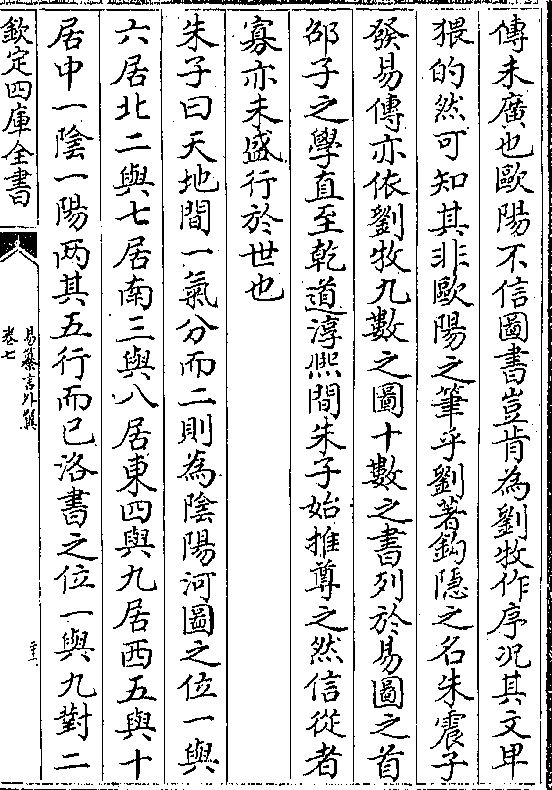 傳未廣也歐陽不信圖書豈肯為劉牧作序况其文甲
猥的然可知其非歐陽之筆乎劉著鈎隐之名朱震子
發易傳亦依劉牧九數之圖十數之書列於易圖之首
邵子之學直至乾道淳熙間朱子始推尊之然信從者
寡亦未盛行於世也
朱子曰天地間一氣分而二則為陰陽河圖之位一與
六居北二與七居南三與八居東四與九居西五與十
居中一陰一陽两其五行而已洛書之位一與九對二
欽定四庫全書
易纂言外翼
卷七